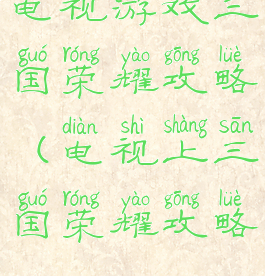 电视游戏三
guó róng yào gōng lüè
国荣耀攻略
diàn shì shàng sān
（电视上三
guó róng yào gōng lüè
国荣耀攻略